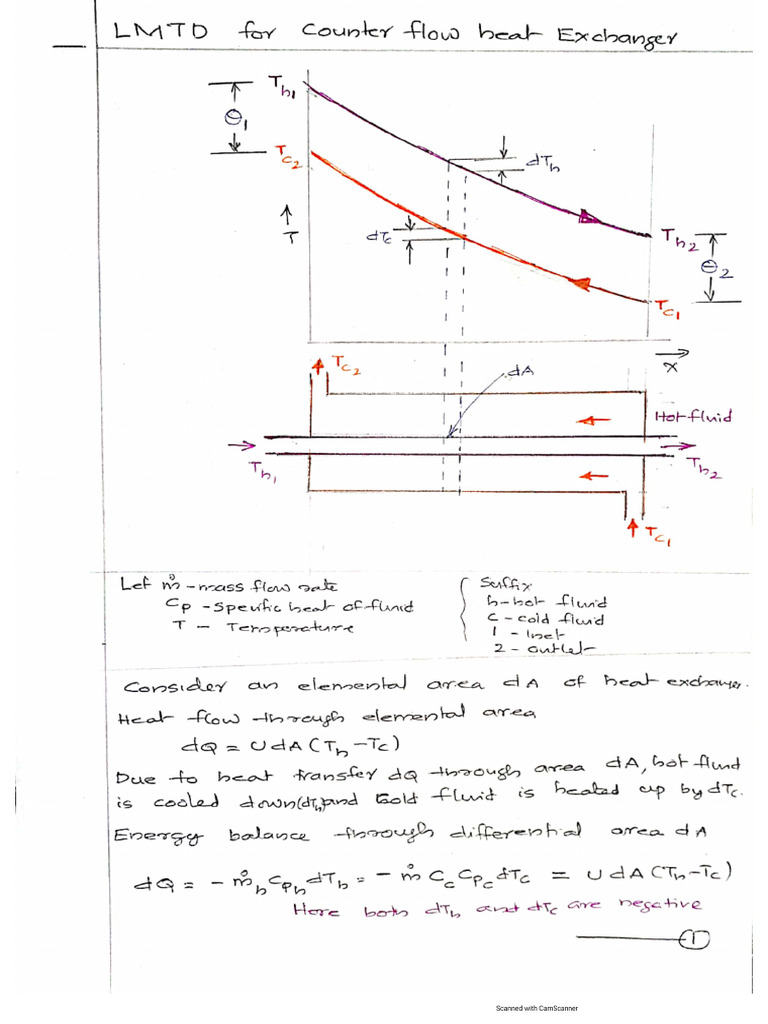 LMTD for Counter flow heat Exchanger
Th1
θ1
Tc2
dTh
↑
T
dTc
Th2
θ2
Tc1
Tc2
dA
x
Hot fluid
Th1
Th2
Tc1
Let ṁ - mass flow rate
Cp - Specific heat of fluid
T - Temperature
Suffix
h - hot fluid
c - cold fluid
1 - Inlet
2 - outlet
Consider an elemental area dA of heat exchanger.
Heat flow through elemental area
dQ = U dA (Th - Tc)
Due to heat transfer dQ through area dA, hot fluid
is cooled down (dTh) and cold fluid is heated up by dTc.
Energy balance through differential area dA
dQ = - ṁh Cph dTh = - ṁ Cc Cpc dTc = U dA (Th - Tc)
Here both dTh and dTc are negative
1
Scanned with CamScanner